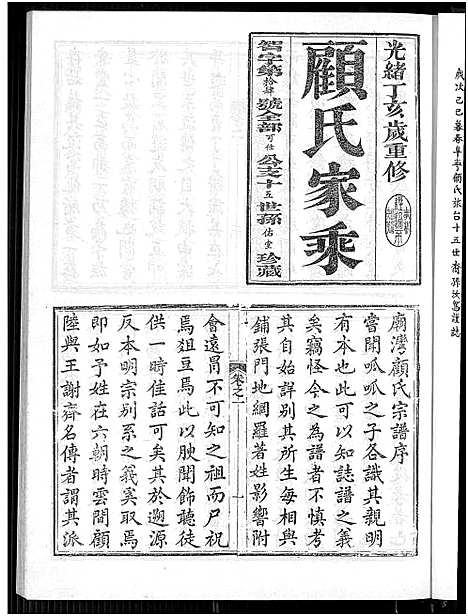 光緒丁亥歲重修
顧氏家乘
智字第拾肆號全部可仕公支十五世孫佑堂珍藏
歲次己巳暮春阜寧顧氏旅台十五世裔孫汝為謹誌
廟灣顧氏宗譜序
嘗聞呱呱之子各識其親明
有本也此可以知誌譜之義
矣竊怪今之為譜者不慎考
其自始詳別其所生每相與
鋪張門地網羅著姓影響附
卷之一
一
會遠胄不可知之祖而尸祝
焉俎豆焉此不過腴聞飾聽徒
供一時佳話可矣其於溯源
反本明宗別系之義奚取焉
即如予姓在六朝時雲間顧
陸與王謝齊名傳者謂其派